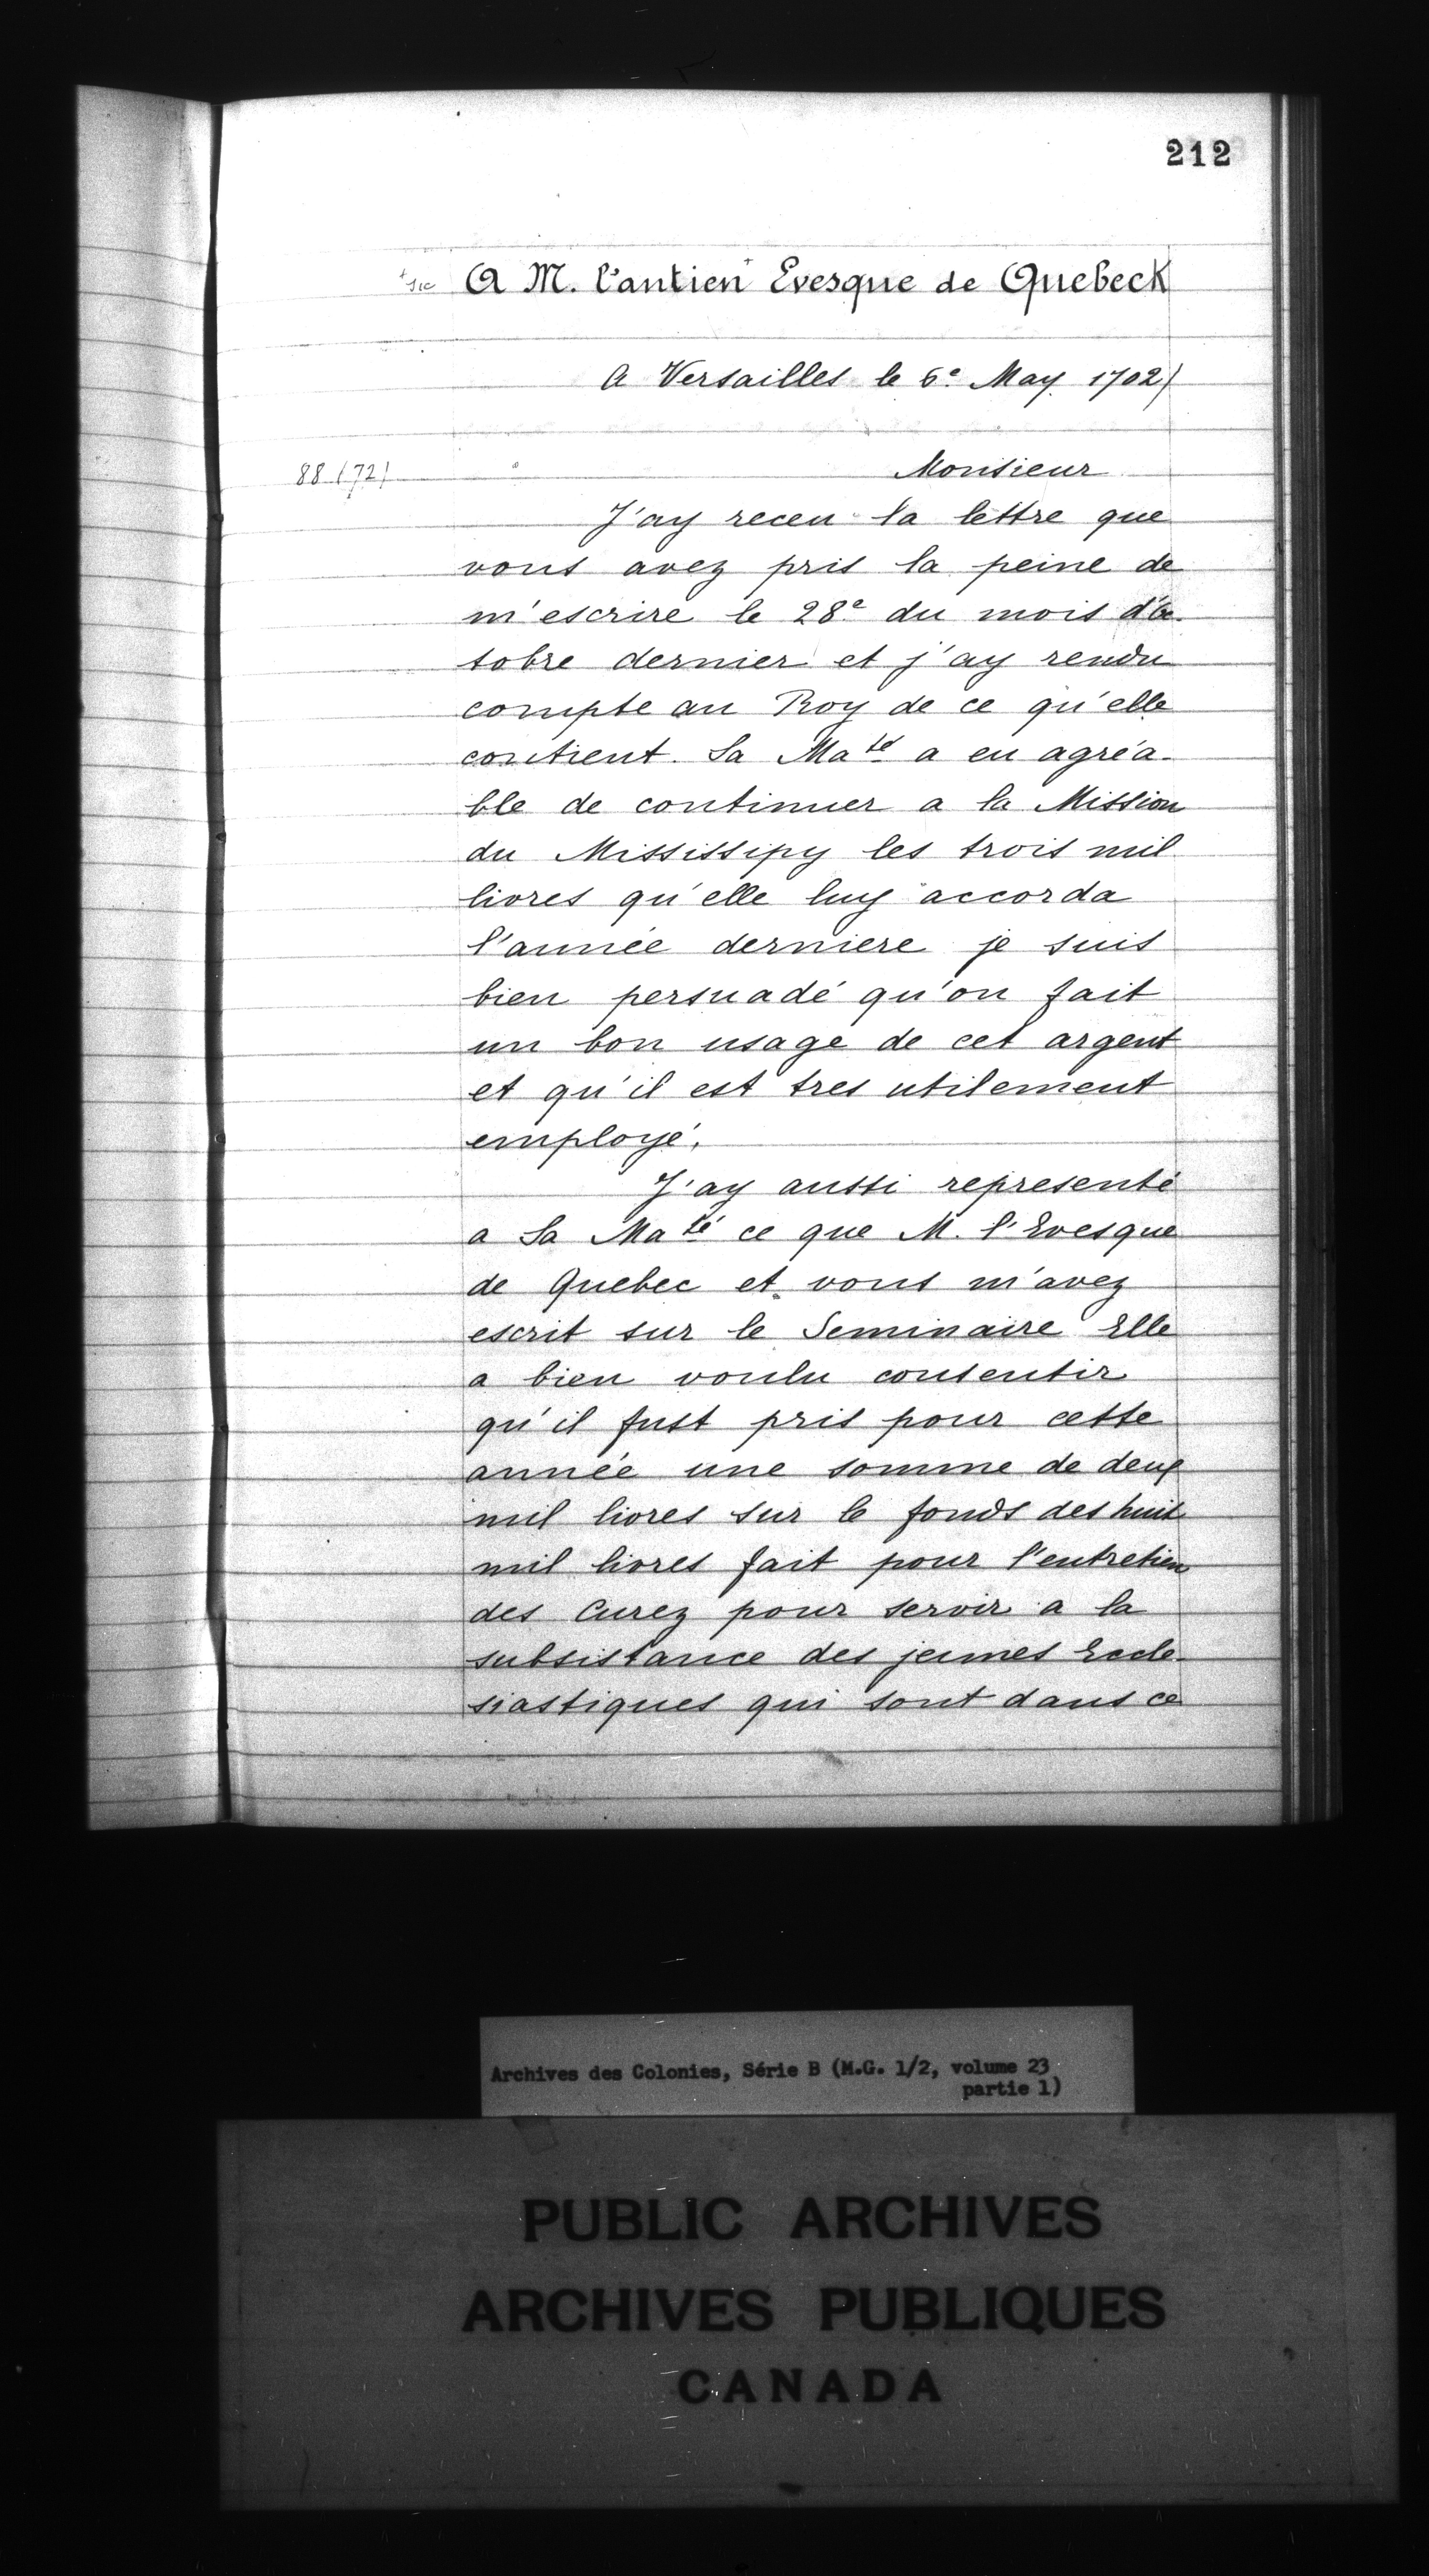 212
+ sic A M. l'antien+ Evesque de Quebeck
A Versailles le 6e May 1702)
88 (72)
Monsieur
J'ay receu la lettre que
vous avez pris la peine de
m'escrire le 28e du mois d'Oc-
tobre dernier et j'ay rendu
compte au Roy de ce qu'elle
contient. Sa Maté a eu agréa-
ble de continuer a la Mission
du Mississipy les trois mil
livres qu'elle luy accorda
l'année derniere je suis
bien persuadé qu'on fait
un bon usage de cet argent
et qu'il est tres utilement
employé.
J'ay aussi representé
a Sa Maté ce que M. l'Evesque
de Quebec et vous m'avez
escrit sur le Seminaire Elle
a bien voulu consentir
qu'il fust pris pour cette
année une somme de deux
mil livres sur le fonds des huit
mil livres fait pour l'entretien
des Curez pour servir a la
subsistance des jeunes Eccle-
siastiques qui sont dans ce
Archives des Colonies, Série B (M.G. 1/2, volume 23
partie 1)
PUBLIC ARCHIVES
ARCHIVES PUBLIQUES
CANADA